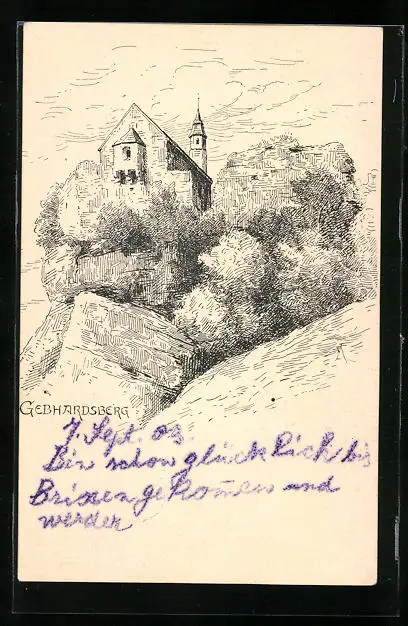 GEBHARDSBERG
7. Sept. 03.
Bin schon glücklich bis
Brixen gekom̄en und
werder